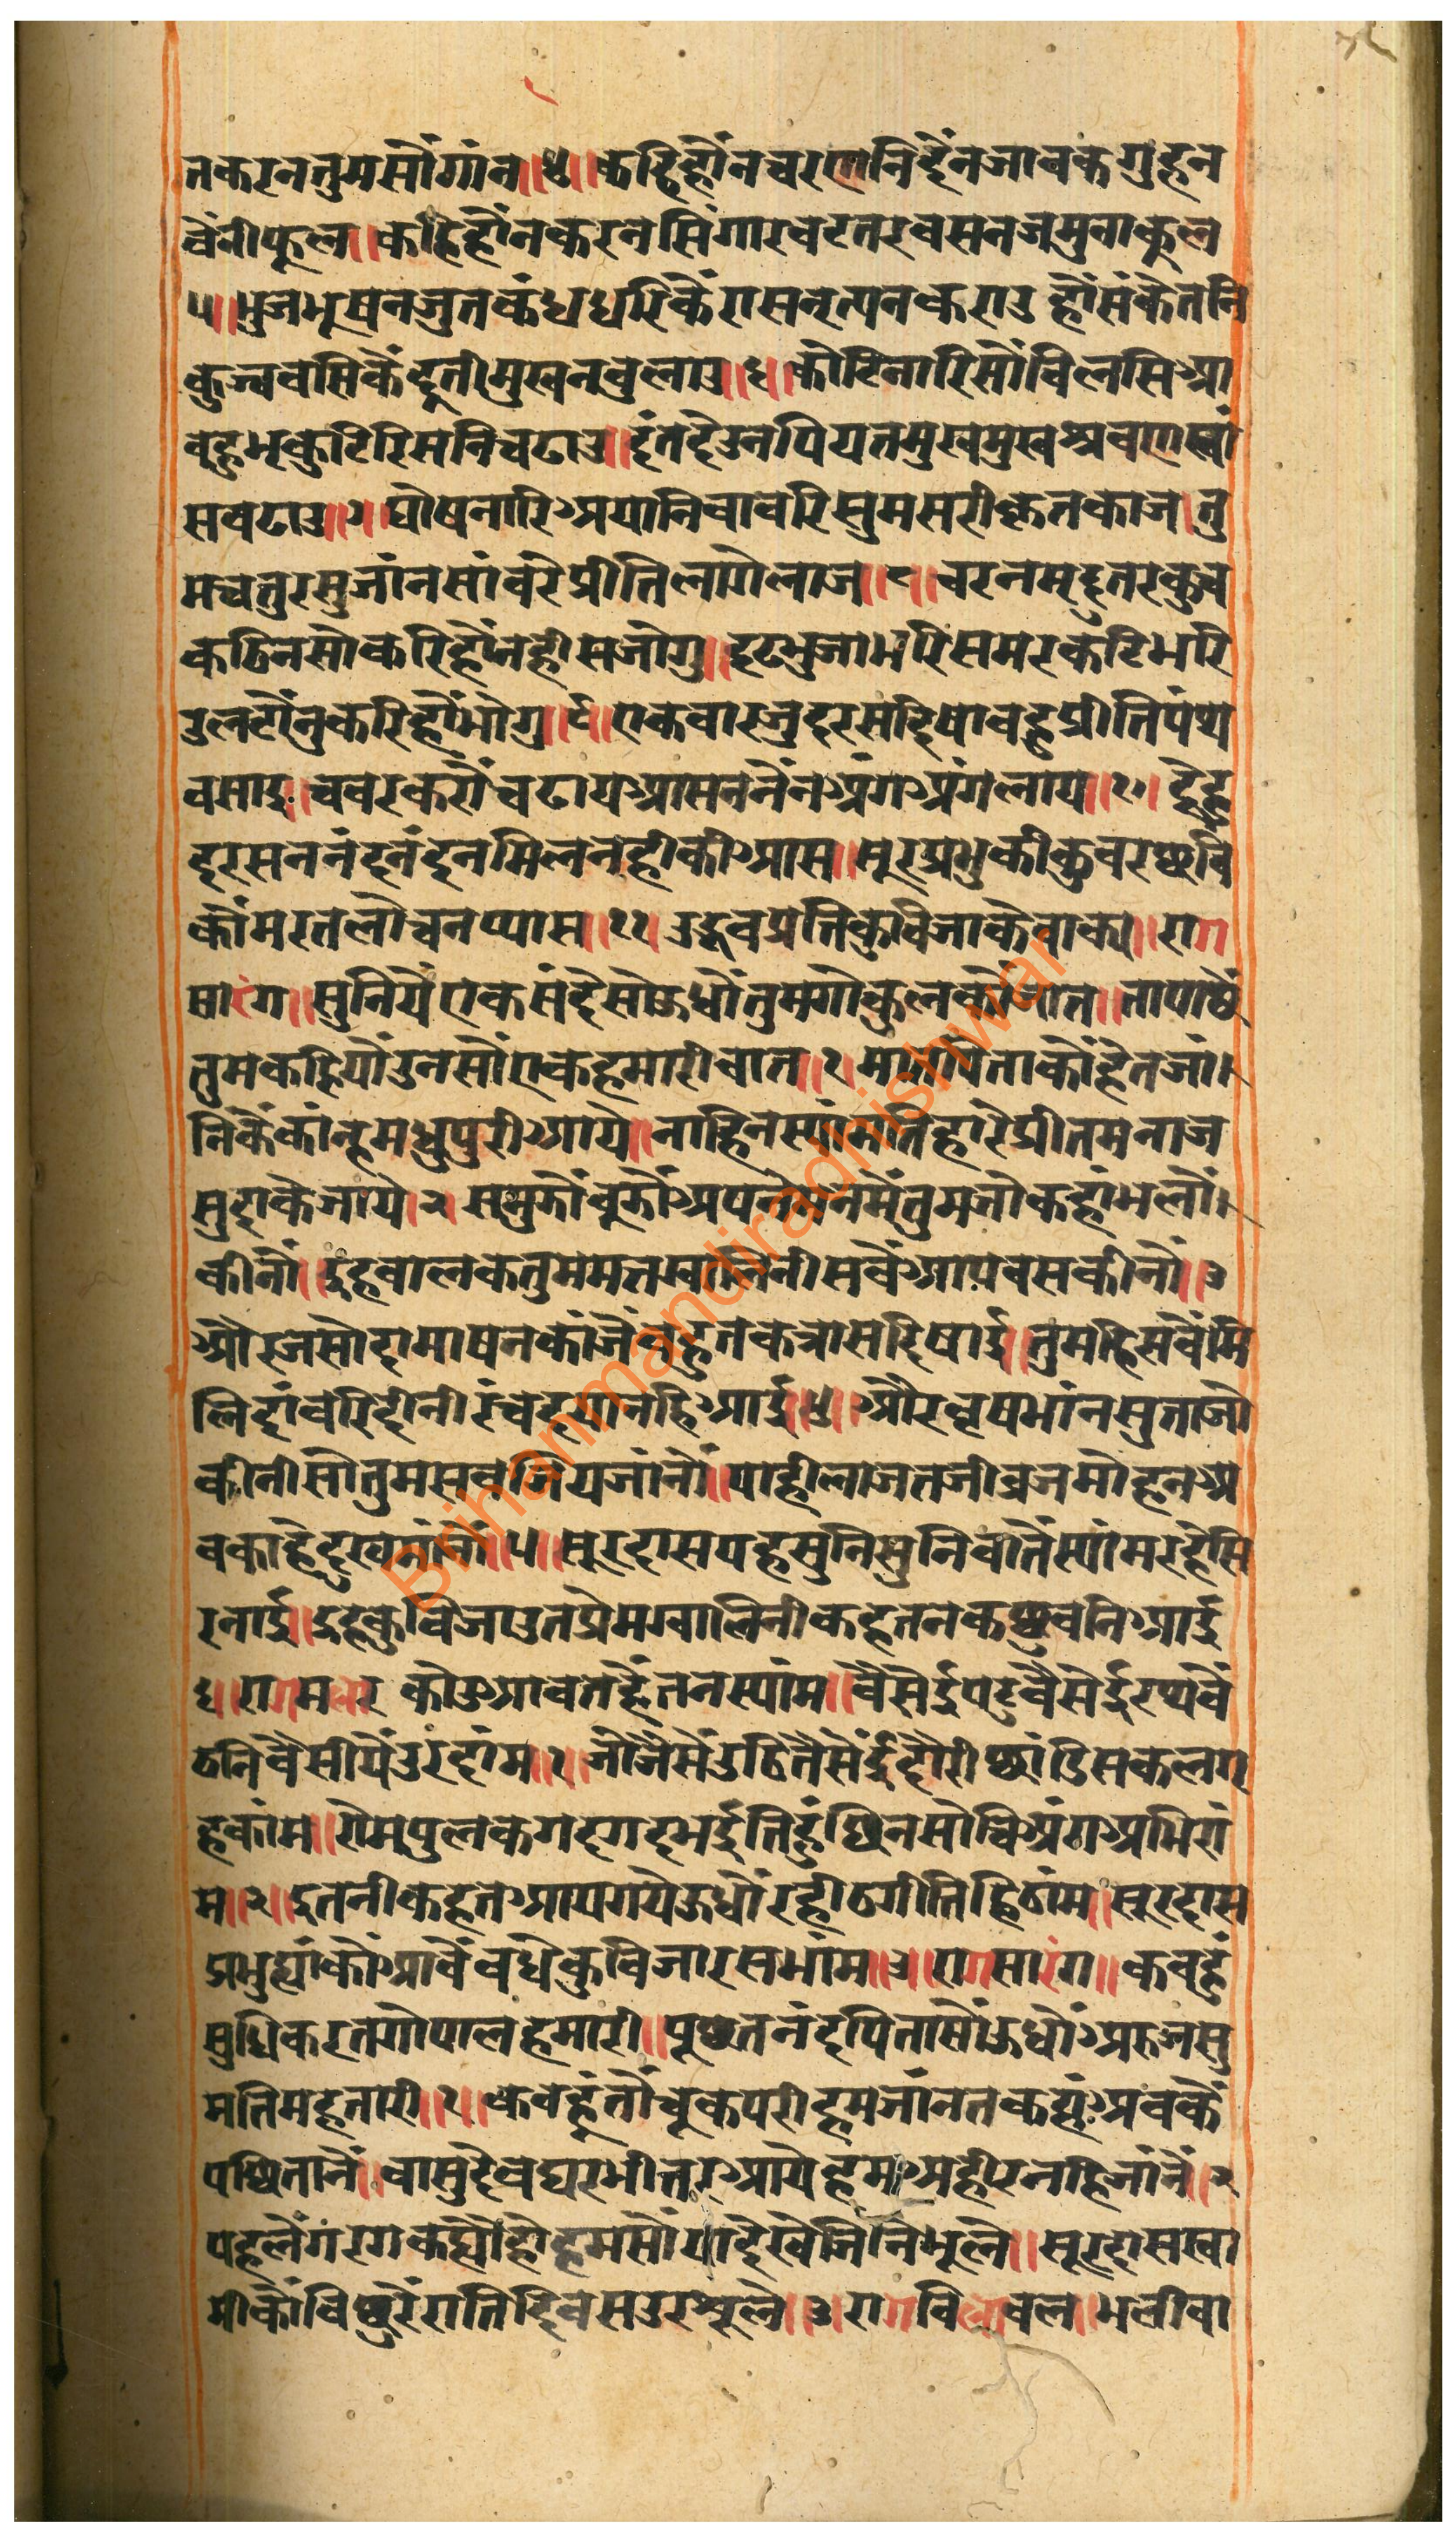 तकरनतुमसौंगांन॥४॥कहिहौंनचरणनिदैंनजावकगुहन
वैंनीफूल॥कहिहौंनकरनसिंगारवटतरवसनजमुनाकूल
५॥भुजभूषनजुतकंधधरिकैंरासनृत्यनकराउहौंसंकेतनि
कुञ्चवसिकैंदूतीमुखनबुलाउ॥६॥कोटिनारिसौंविलसिआ
वहुभृकुटिरिसनिचढाउ॥दंतदैउनपियतमुखमुखश्रवणस्वां
सवढाउ॥७॥घोषनारिअयानिवावरिसुमसरीकृतकाज॥तु
मचतुरसुजांनसांवरेप्रीतिलागेलाज॥८॥चरनमृदुतरकुच
कठिनसोकरिहौंनहीसजोगु॥दृढभुजाभरिसमरकटिभरि
उलटौंनुकरिहौंभोगु॥९॥एकवारजुदरसदिषावहुप्रीतिपंथ
वसाइ॥चवरकरौंचढायआसननैंनअंगअंगलाय॥१०॥देहु
दरसननंदनंदनमिलनहीकीआस॥सूरप्रभुकीकुवरछवि
कौंमरतलोचनप्यास॥११॥उद्धवप्रतिकुविजाकेवाक्य॥राग
सारंग॥सुनियेंएकसंदेसोऊधौतुमगोकुलकौंजात॥तापाछैं
तुमकहियौउनसौंएकहमारीवात॥१॥मातपिताकौंहेतजां॥
निकैंकांन्हमधुपुरीआये॥नाहिनस्यांमतिहारेप्रीतमनाज
सुदाकेजाये॥२॥समुझौंवुझौंअपनेमनमेंतुमजोकहांभलौं॥
कीनौं॥इहवालकतुममत्तग्वालिनीसवैंआपवसकीनौं॥३
औरजसोदामाषनकाजैंवहुतकत्रासदिषाई॥तुमहिसवैंमि
लिदांवरिदीनीरंचदयानहिआई॥४॥औरवृषभांनसुताजो
कीनीसोतुमसवजियजांनौं॥याहीलाजतजीव्रजमोहनअ
वकाहेदुखमांनौं॥५॥सूरदासयहसुनिसुनिवातैंस्यांमरहेसि
रनाई॥इहकुविजाउतप्रेमग्वालिनीकहतनकछुवनिआई
६॥रागमलार कोउआवतहैंतनस्यांम॥वैसेईपटवैसेईरथवैं
ठनिवैसीयैंउरदांम॥१॥जोजैसेंउठितैसेंईदौरीछांडिसकलगृ
हकांम॥रोमपुलकगदगदभईतिहुंछिनसोचिअंगअभिरां
म॥२॥इतनीकहतआयगयेऊधौरहीठगीतिहिठांम॥सूरदास
प्रभुह्यांकौंआवैंवधेकुविजारसभांम॥३॥रागसारंग॥कवहुं
सुधिकरतगोपालहमारी॥पूछतनंदपितासौंऊधौंअरुजसु
मतिमहतारी॥१॥कवहुंतौचूकपरीहमजांनतकह्यंअवकैं
पछितानैं॥वासुदेवघरभीतरआयेहमअहीरनहिजांनैं॥२
पहलेंगरगकह्यौहौहमसौंयादेखेजिनिभूलै॥सूरदासस्वा
मीकौंविछुरैंरातिदिवसउरशूलै॥३॥रागविलावल॥भलीवा